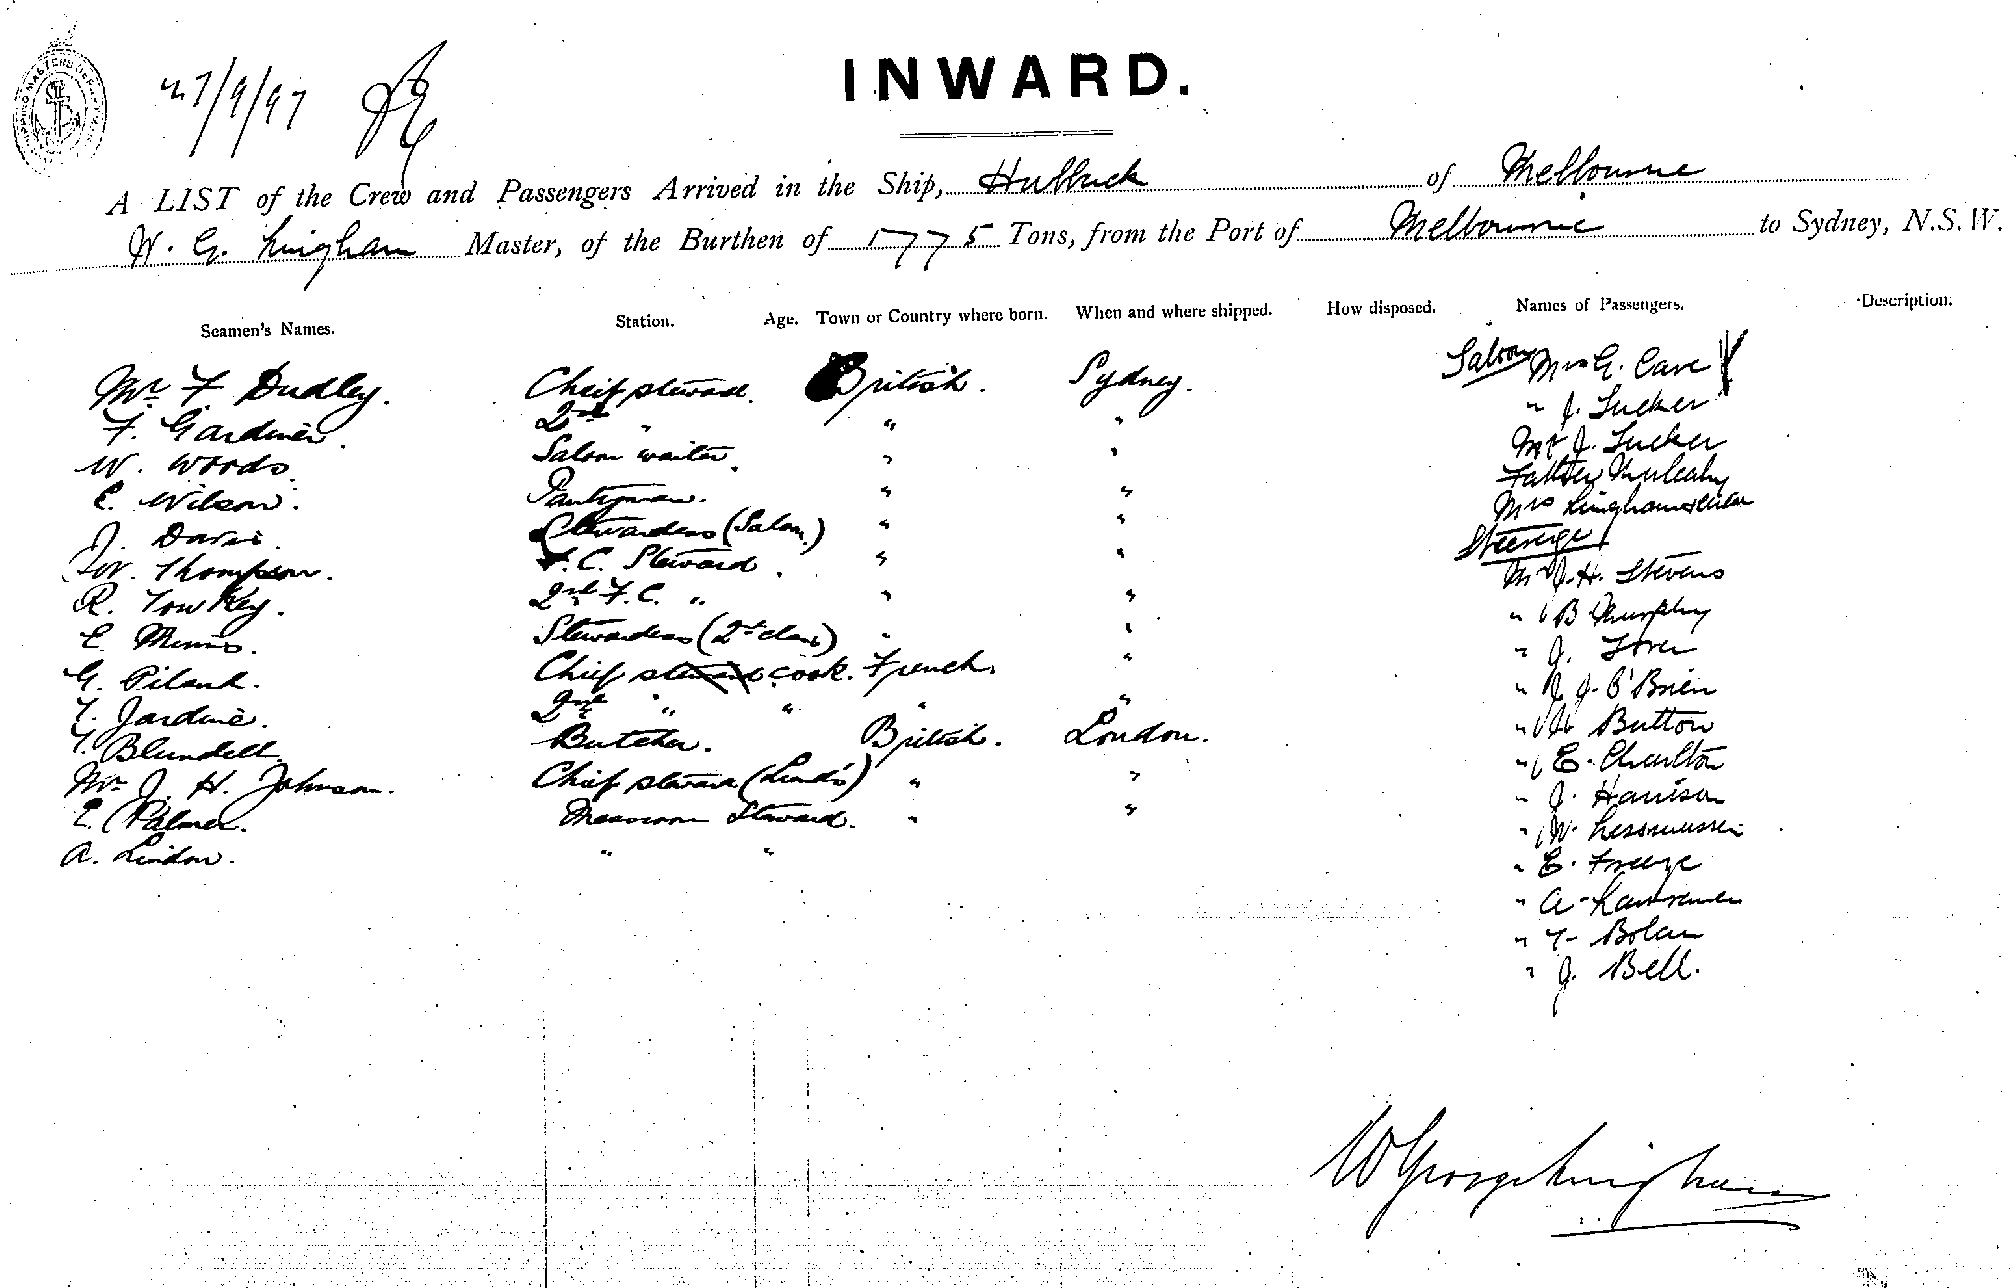 27/9/97
INWARD.
A LIST of the Crew and Passengers Arrived in the Ship, Hubbuck of Melbourne
W. G. Lingham Master, of the Burthen of 1775 Tons, from the Port of Melbourne to Sydney, N.S.W.
Seamen's Names. Station. Age. Town or Country where born. When and where shipped. How disposed. Names of Passengers. Description.
Mr F Dudley. Cheif steward. British. Sydney. Saloon Mrs G. Cave
F. Gardiner. 2nd " " " " J. Tucker
W. Woods. Saloon waiter. " " Mr J. Tucker
E. Wilson. Pantryman. " " Father Mulcahy
J. Davis. Stewardess (Saloon) " " Mrs Lingham
Thompson. F.C. Steward. " " Steerage
R. Towkey. 2nd F.C. " " " Mr J. H. Stevens
E. Mimms. Stewardess (2nd class) " " " B Murphy
G. Piland. Chief steward cook. French. " " J.
T. Jardine. 2nd " " " " " J. O'Brien
T. Blundell. Butcher. British. London. " Button
Mr J. H. Johnson. Chief steward " " " E. Charlton
E. Palmer. Messroom Steward. " " " J. Harrison
A. Lindon. " " " W.
" E. Freeze
" A
" T. Bolan
" J. Bell.
W George Lingham